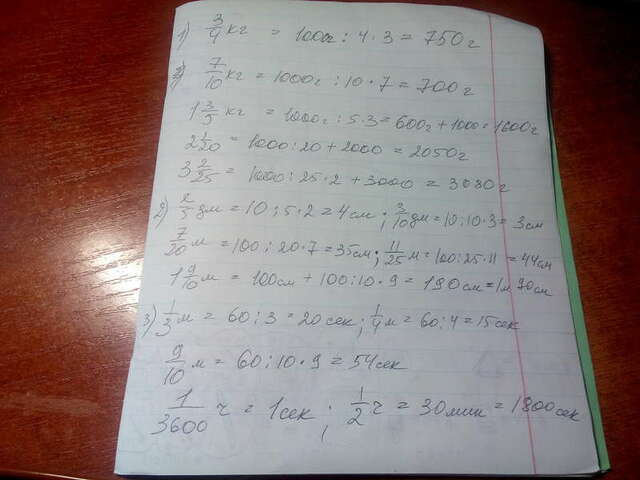 1) 3/4 кг = 1000г : 4 · 3 = 750 г
7/10 кг = 1000г : 10 · 7 = 700 г
1 3/5 кг = 1000г : 5 · 3 = 600г + 1000 = 1600г
2 1/20 = 1000 : 20 + 2000 = 2050 г
3 2/25 = 1000 : 25 · 2 + 3000 = 3080 г
2) 2/5 дм = 10 : 5 · 2 = 4 см ; 3/10 дм = 10 : 10 · 3 = 3 см
7/20 м = 100 : 20 · 7 = 35 см ; 11/25 м = 100 : 25 · 11 = 44 см
1 9/10 м = 100 см + 100 : 10 · 9 = 190 см = 1м 90 см
3) 1/3 м = 60 : 3 = 20 сек ; 1/4 м = 60 : 4 = 15 сек
9/10 м = 60 : 10 · 9 = 54 сек
1/3600 ч = 1 сек ; 1/2 ч = 30 мин = 1800 сек